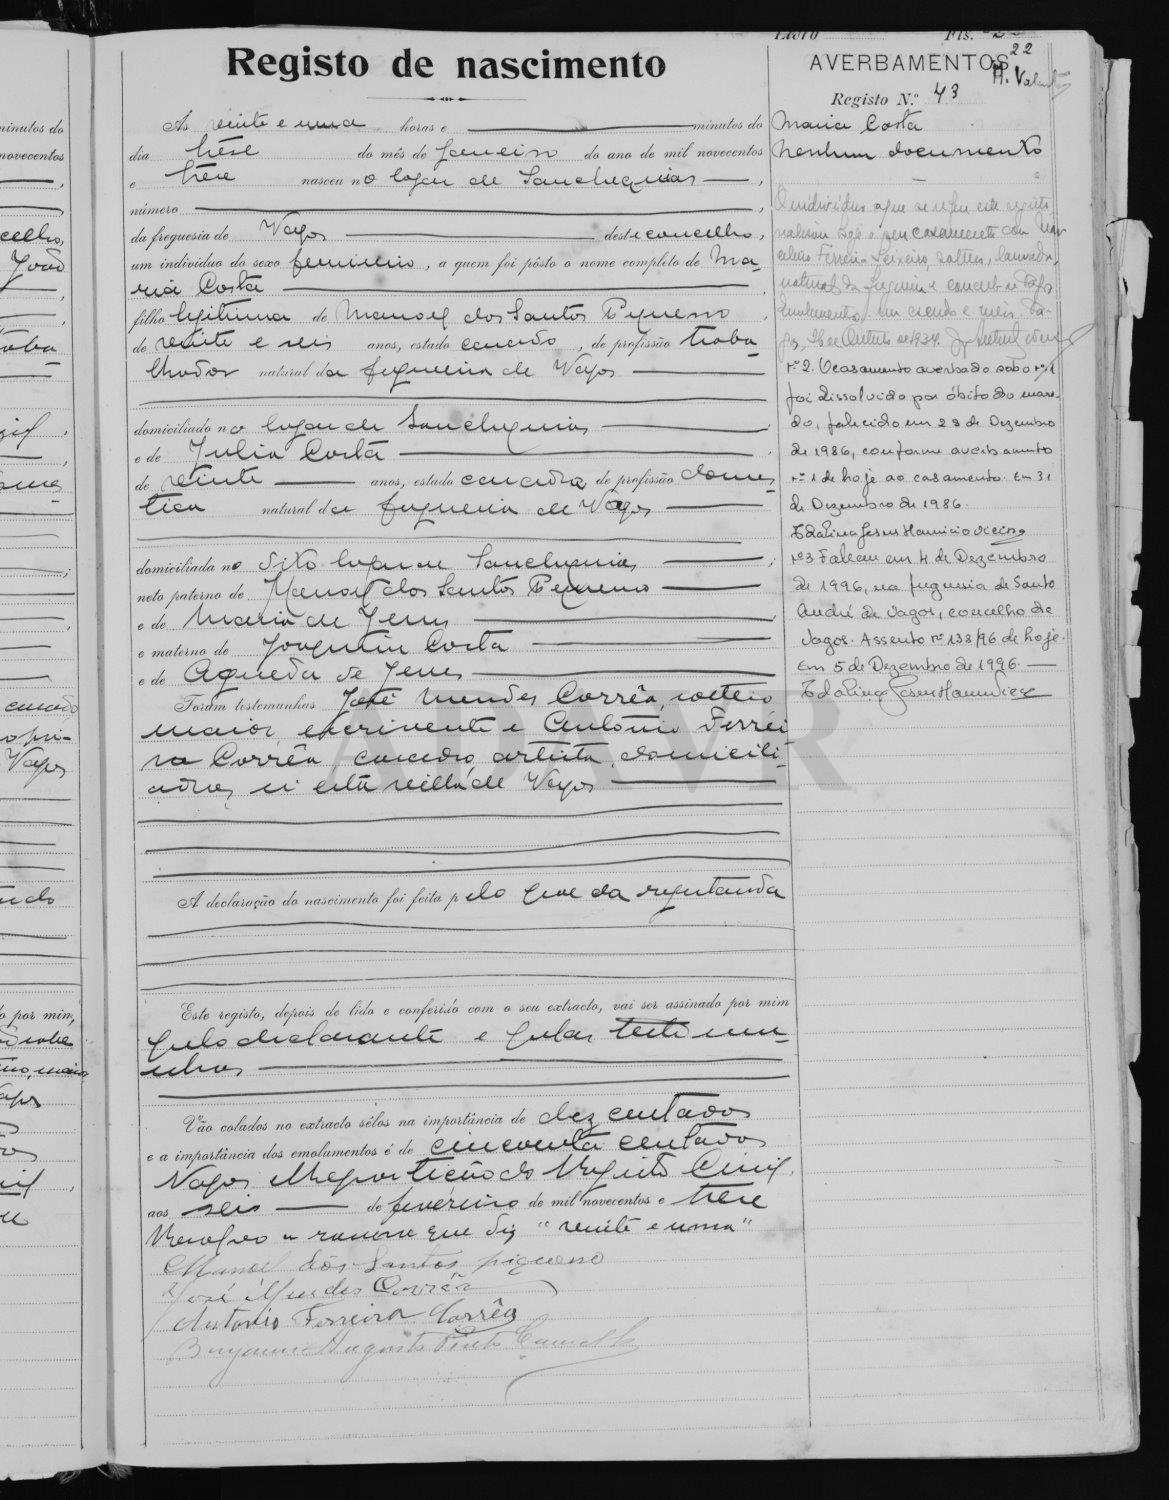 Registo de nascimento
Às vinte e uma horas e minutos do
dia trêse do mês de Janeiro do ano de mil novecentos
e trêse nasceu no logar de Sanchequias,
número
da freguesia de Vagos deste concelho,
um indivíduo do sexo feminino, a quem foi pôsto o nome completo de Ma-
ria Costa
filho legitima de Manoel dos Santos Pequeno,
de vinte e seis anos, estado casado, de profissão traba-
lhador natural da freguesia de Vagos
domiciliado no logar de Sanchequias
e de Julia Costa
de vinte anos, estado casada de profissão domes-
tica natural da freguesia de Vagos
domiciliada no dito logar de Sanchequias;
neto paterno de Manoel dos Santos Pequeno
e de Maria de Jesus
e materno de Joaquim Costa
e de Agueda de Jesus
Foram testemunhas José Mendes Corrêa, solteiro
maior, escrivente e António Ferrei-
ra Corrêa, casado, artista, domicili-
ados n'esta villa de Vagos
A declaração do nascimento foi feita pelo pae da registanda
Este registo, depois de lido e conferido com o seu extracto, vai ser assinado por mim
pelo declarante e pelas testemu-
nhas
Vão colados no extracto sêlos na importância de dez centavos
e a importância dos emolumentos é de cincoenta centavos
Vagos Repartição do Registo Civil,
aos seis de fevereiro de mil novecentos e trese
Resalvo a rasura que diz "vinte e uma"
Manoel dos Santos piqueno
José Mendes Corrêa
Antonio Ferreira Corrêa
Livro Fls. 2
22
AVERBAMENTOS
Registo N.º 43
Maria Costa
Nenhum documento
O individuo a que se refere este registo
realisou hoje o seu casamento com
Ferreira Teixeira, solteiro, lavrador,
natural da freguesia e concelho de Vagos
Emolumentos um escudo e meio. Va-
gos, de Outubro de 1934.
Nº 2. O casamento averbado sob o nº 1
foi dissolvido por óbito do mari-
do, falecido em 28 de Dezembro
de 1986, conforme averbamento
nº 1 de hoje ao casamento. Em 31
de Dezembro de 1986.
Nº 3 Faleceu em 4 de Dezembro
de 1996, na freguesia de Santo
André de Vagos, concelho de
Vagos. Assento nº 138/96 de hoje.
Em 5 de Dezembro de 1996.
ADAVR